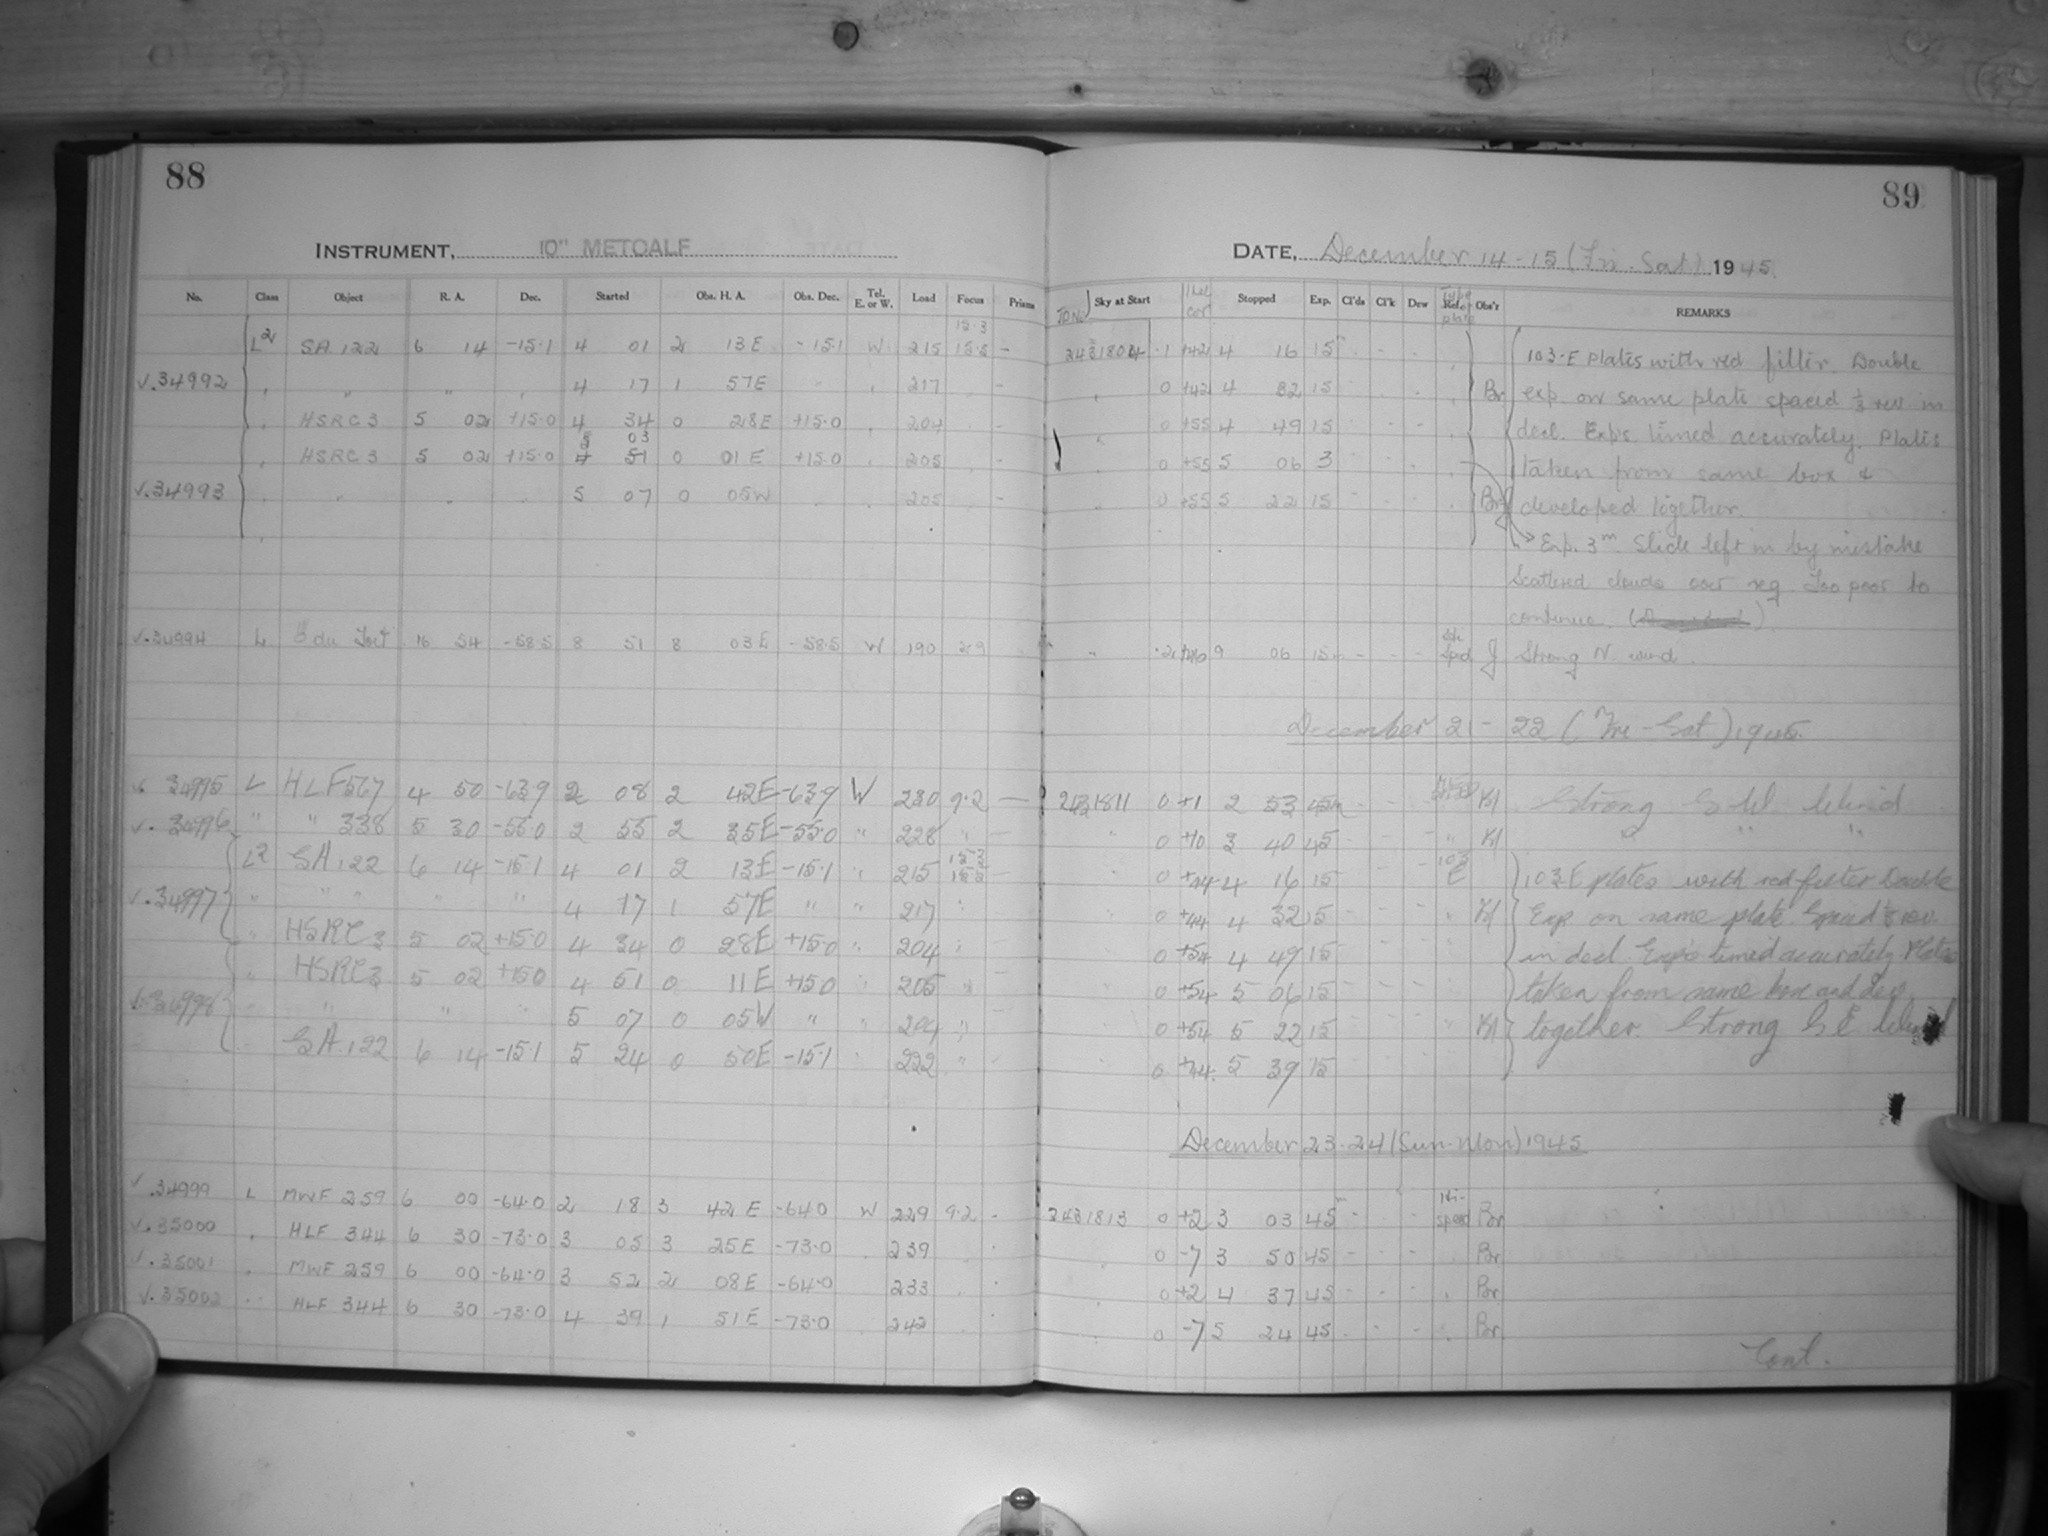 88
89
INSTRUMENT, 10" METCALF
DATE, December 14-15 (Fri. Sat) 1945
No. Class Object R. A. Dec. Started Obs. H. A. Obs. Dec. Tel. E. or W. Load Focus Prisms JD No. Sky at Start Stopped Exp. Cl'ds Cl'k Dew Type of plate Obs'r REMARKS
15.3
L2 SA 122 6 14 -15.1 4 01 2 13E -15.1 W 215 15.5 - 2431804 .1 +42 4 16 15 - - 103-E plates with red filter. Double
√.34992 " " " 4 17 1 57E " 217 - " 0 +42 4 32 15 Br exp. on same plate spaced 1/3 rev in
" HSRC3 5 02 +15.0 4 34 0 28E +15.0 " 204 - " 0 +55 4 49 15 decl. Exps timed accurately. Plates
5 03
" HSRC3 5 02 +15.0 4 51 0 01E +15.0 " 205 - " 0 +55 5 06 3 taken from same box &
√.34993 " " " 5 07 0 05W " 205 - " 0 +55 5 22 15 Br developed together.
Exp. 3m. Slide left in by mistake
Scattered clouds over reg. Too poor to
continue.
√.34994 L 16 54 -58.5 8 51 8 03E -58.5 W 190 29 " .2 9 06 15m - - - J Strong N. wind.
December 21-22 (Fri-Sat) 1945
√ 34995 L HLF567 4 50 -63.9 2 08 2 42E -63.9 W 230 9.2 — 2431811 0 +1 2 53 45m Kl Strong S W Wind
√. 34996 " " 338 5 30 -55.0 2 55 2 35E -55.0 " 228 " — " 0 +10 3 40 45 " Kl " "
L2 SA 122 6 14 -15.1 4 01 2 13E -15.1 " 215 — " 0 +44 4 16 15 103 E 103-E plates with red filter Double
√.34997 " " " " " 4 17 1 57E " " 217 " " 0 +44 4 32 15 " Kl Exp on same plate. Spaced 1/3 rev.
" HSRC3 5 02 +15.0 4 34 0 28E +15.0 " 204 " 0 +54 4 49 15 in decl. Exps timed accurately. Plates
" HSRC3 5 02 +15.0 4 51 0 11E +15.0 " 205 " 0 +54 5 06 15 taken from same box and dev.
√.34998 " " " " 5 07 0 05W " " 204 " 0 +54 5 22 15 Kl together. Strong S E Wind
SA 122 6 14 -15.1 5 24 0 50E -15.1 " 222 " 0 +44 5 39 15
December 23-24 (Sun-Mon) 1945
√.34999 L MWF 259 6 00 -64.0 2 18 3 42E -64.0 W 229 9.2 - 2431813 0 +2 3 03 45m - - - Hi-speed Br
√.35000 " HLF 344 6 30 -73.0 3 05 3 25E -73.0 239 0 -7 3 50 45 - - - " Br
√.35001 " MWF 259 6 00 -64.0 3 52 2 08E -64.0 233 0 +2 4 37 45 - - - " Br
√.35002 " HLF 344 6 30 -73.0 4 39 1 51E -73.0 242 0 -7 5 24 45 - - - " Br
Cont.